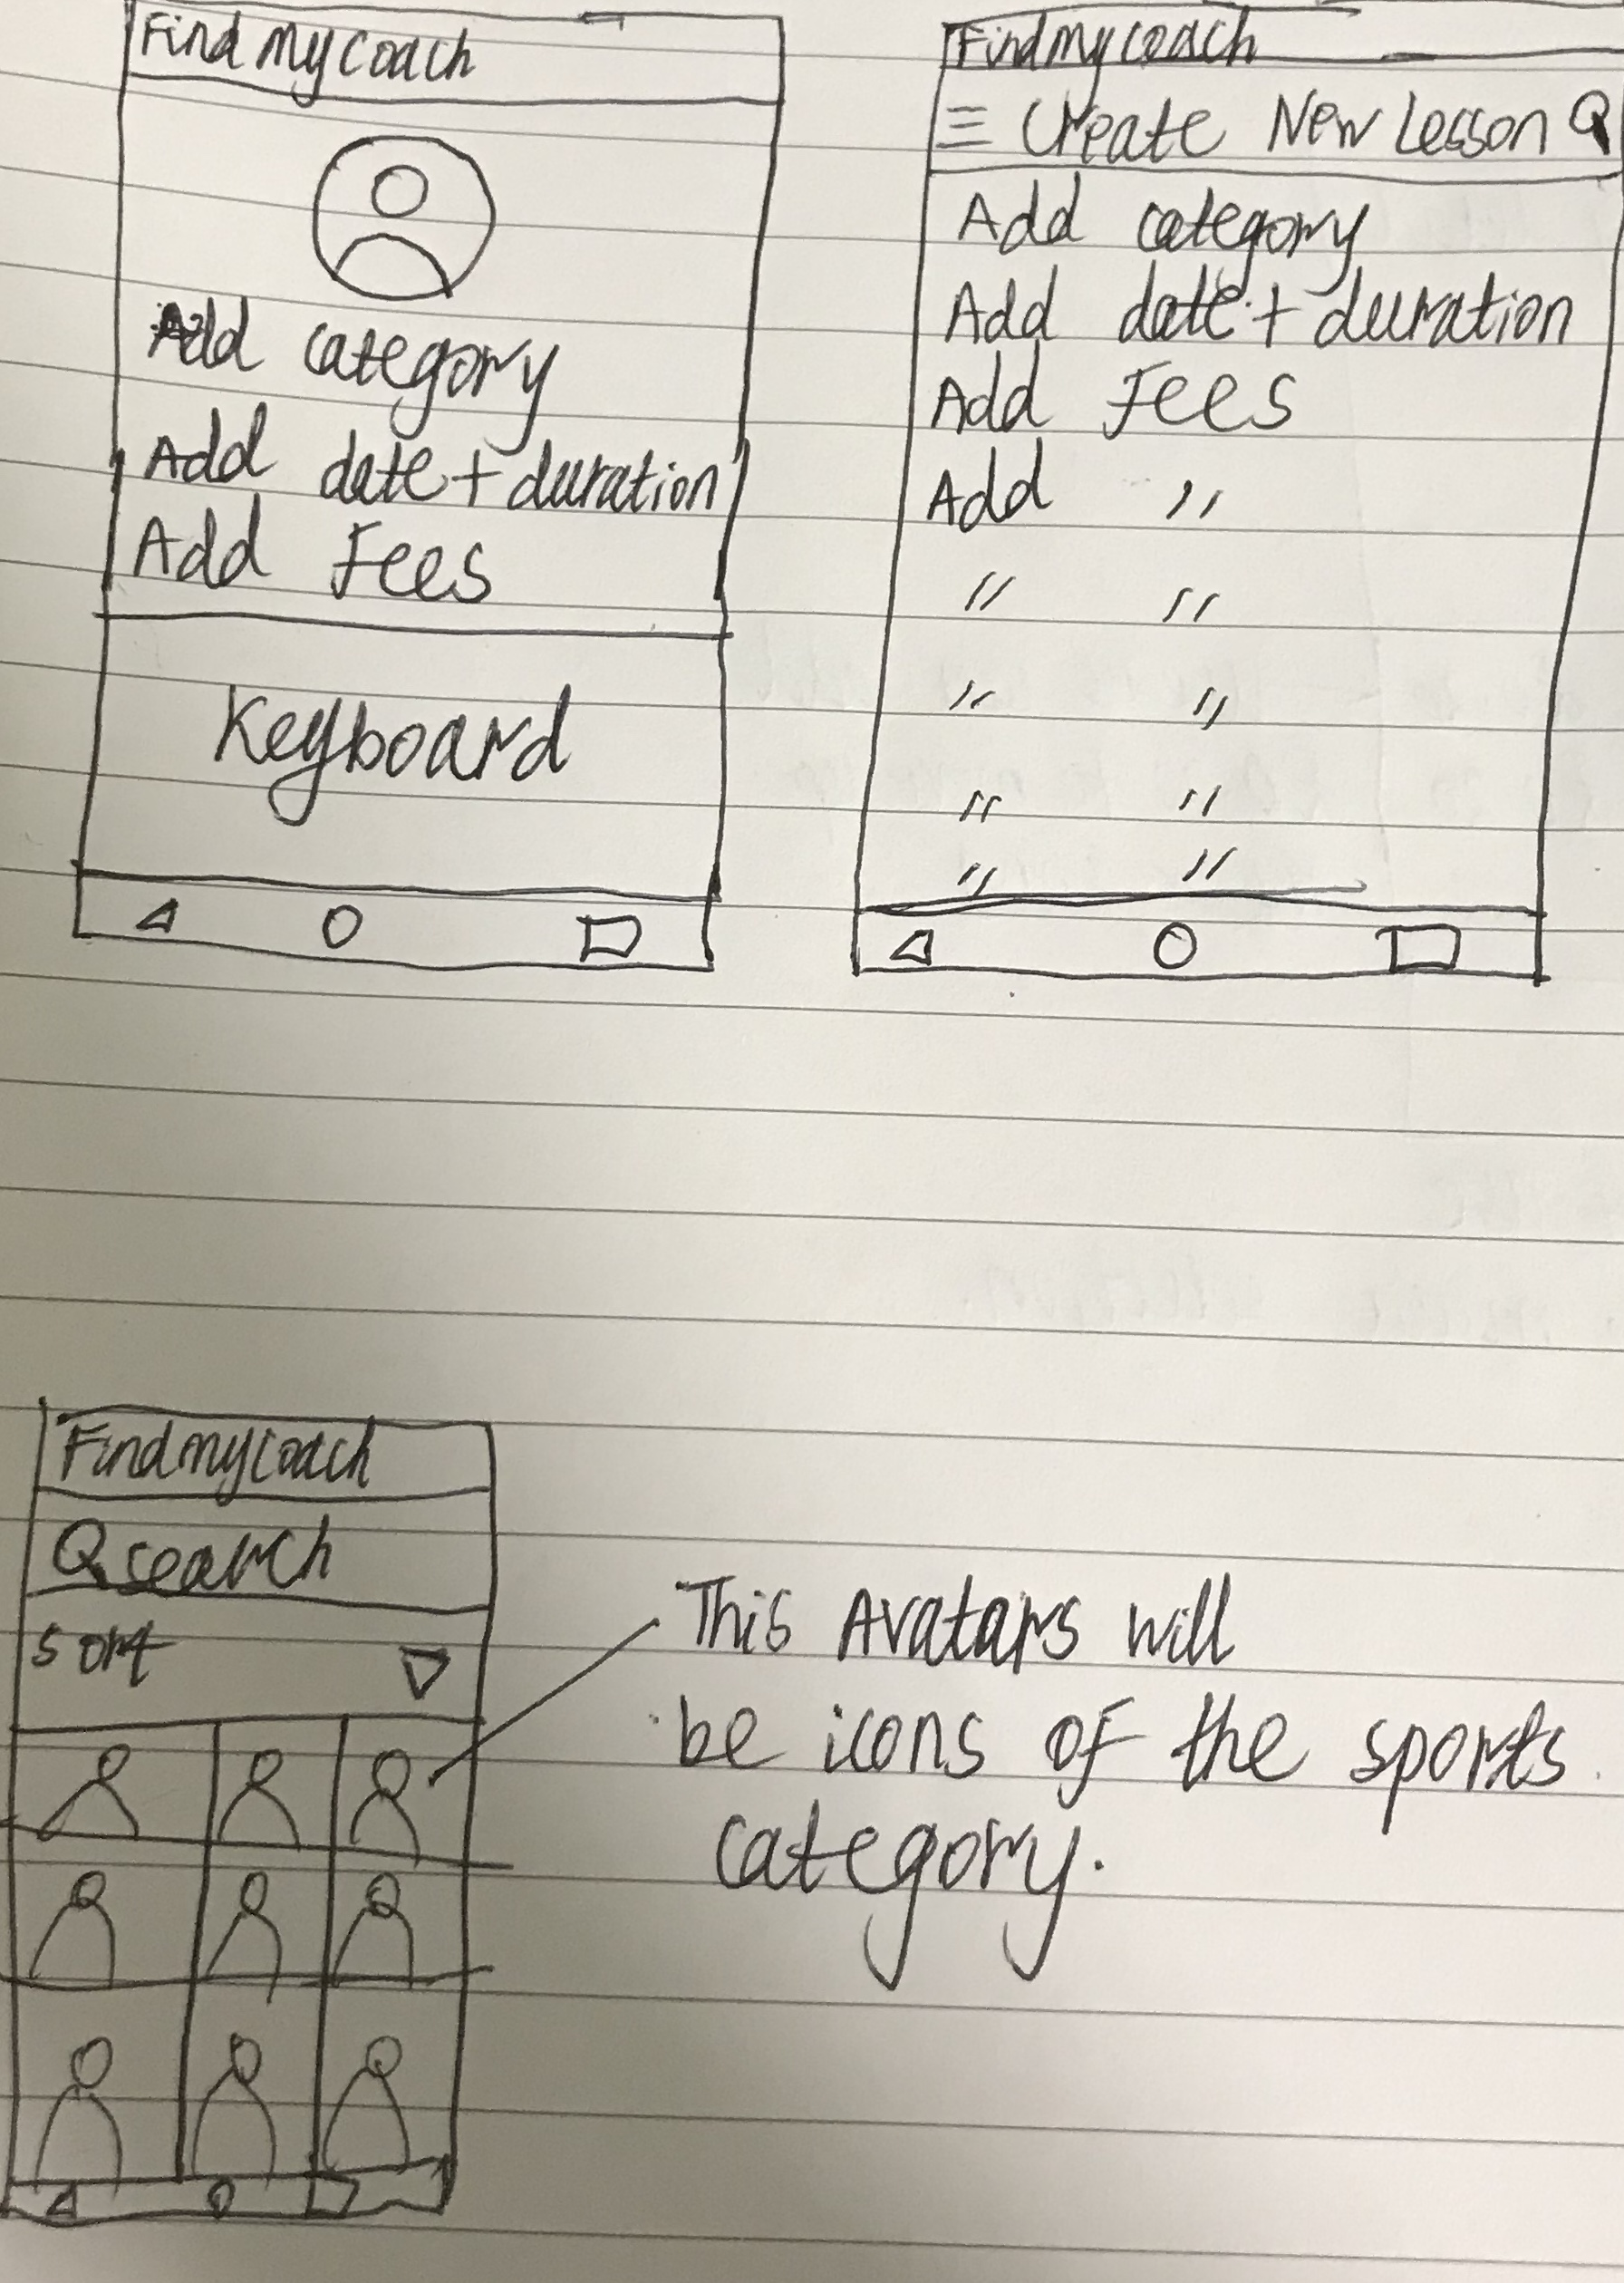 Find my coach
Add category
Add date + duration
Add Fees
Keyboard
Findmycoach
Create New Lesson
Add category
Add date + duration
Add Fees
Add "
" "
" "
" "
" "
Findmycoach
search
Sort
This Avatars will
be icons of the sports
category.